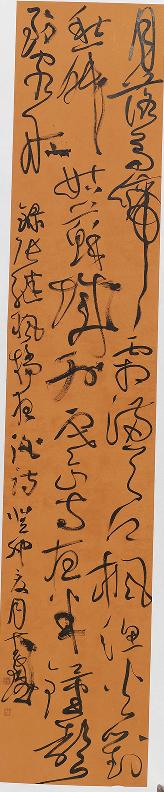 月落乌啼霜满天江枫渔火对
愁眠姑苏城外寒山寺夜半钟声
到客船 录张继枫桥夜泊诗 癸卯夏月